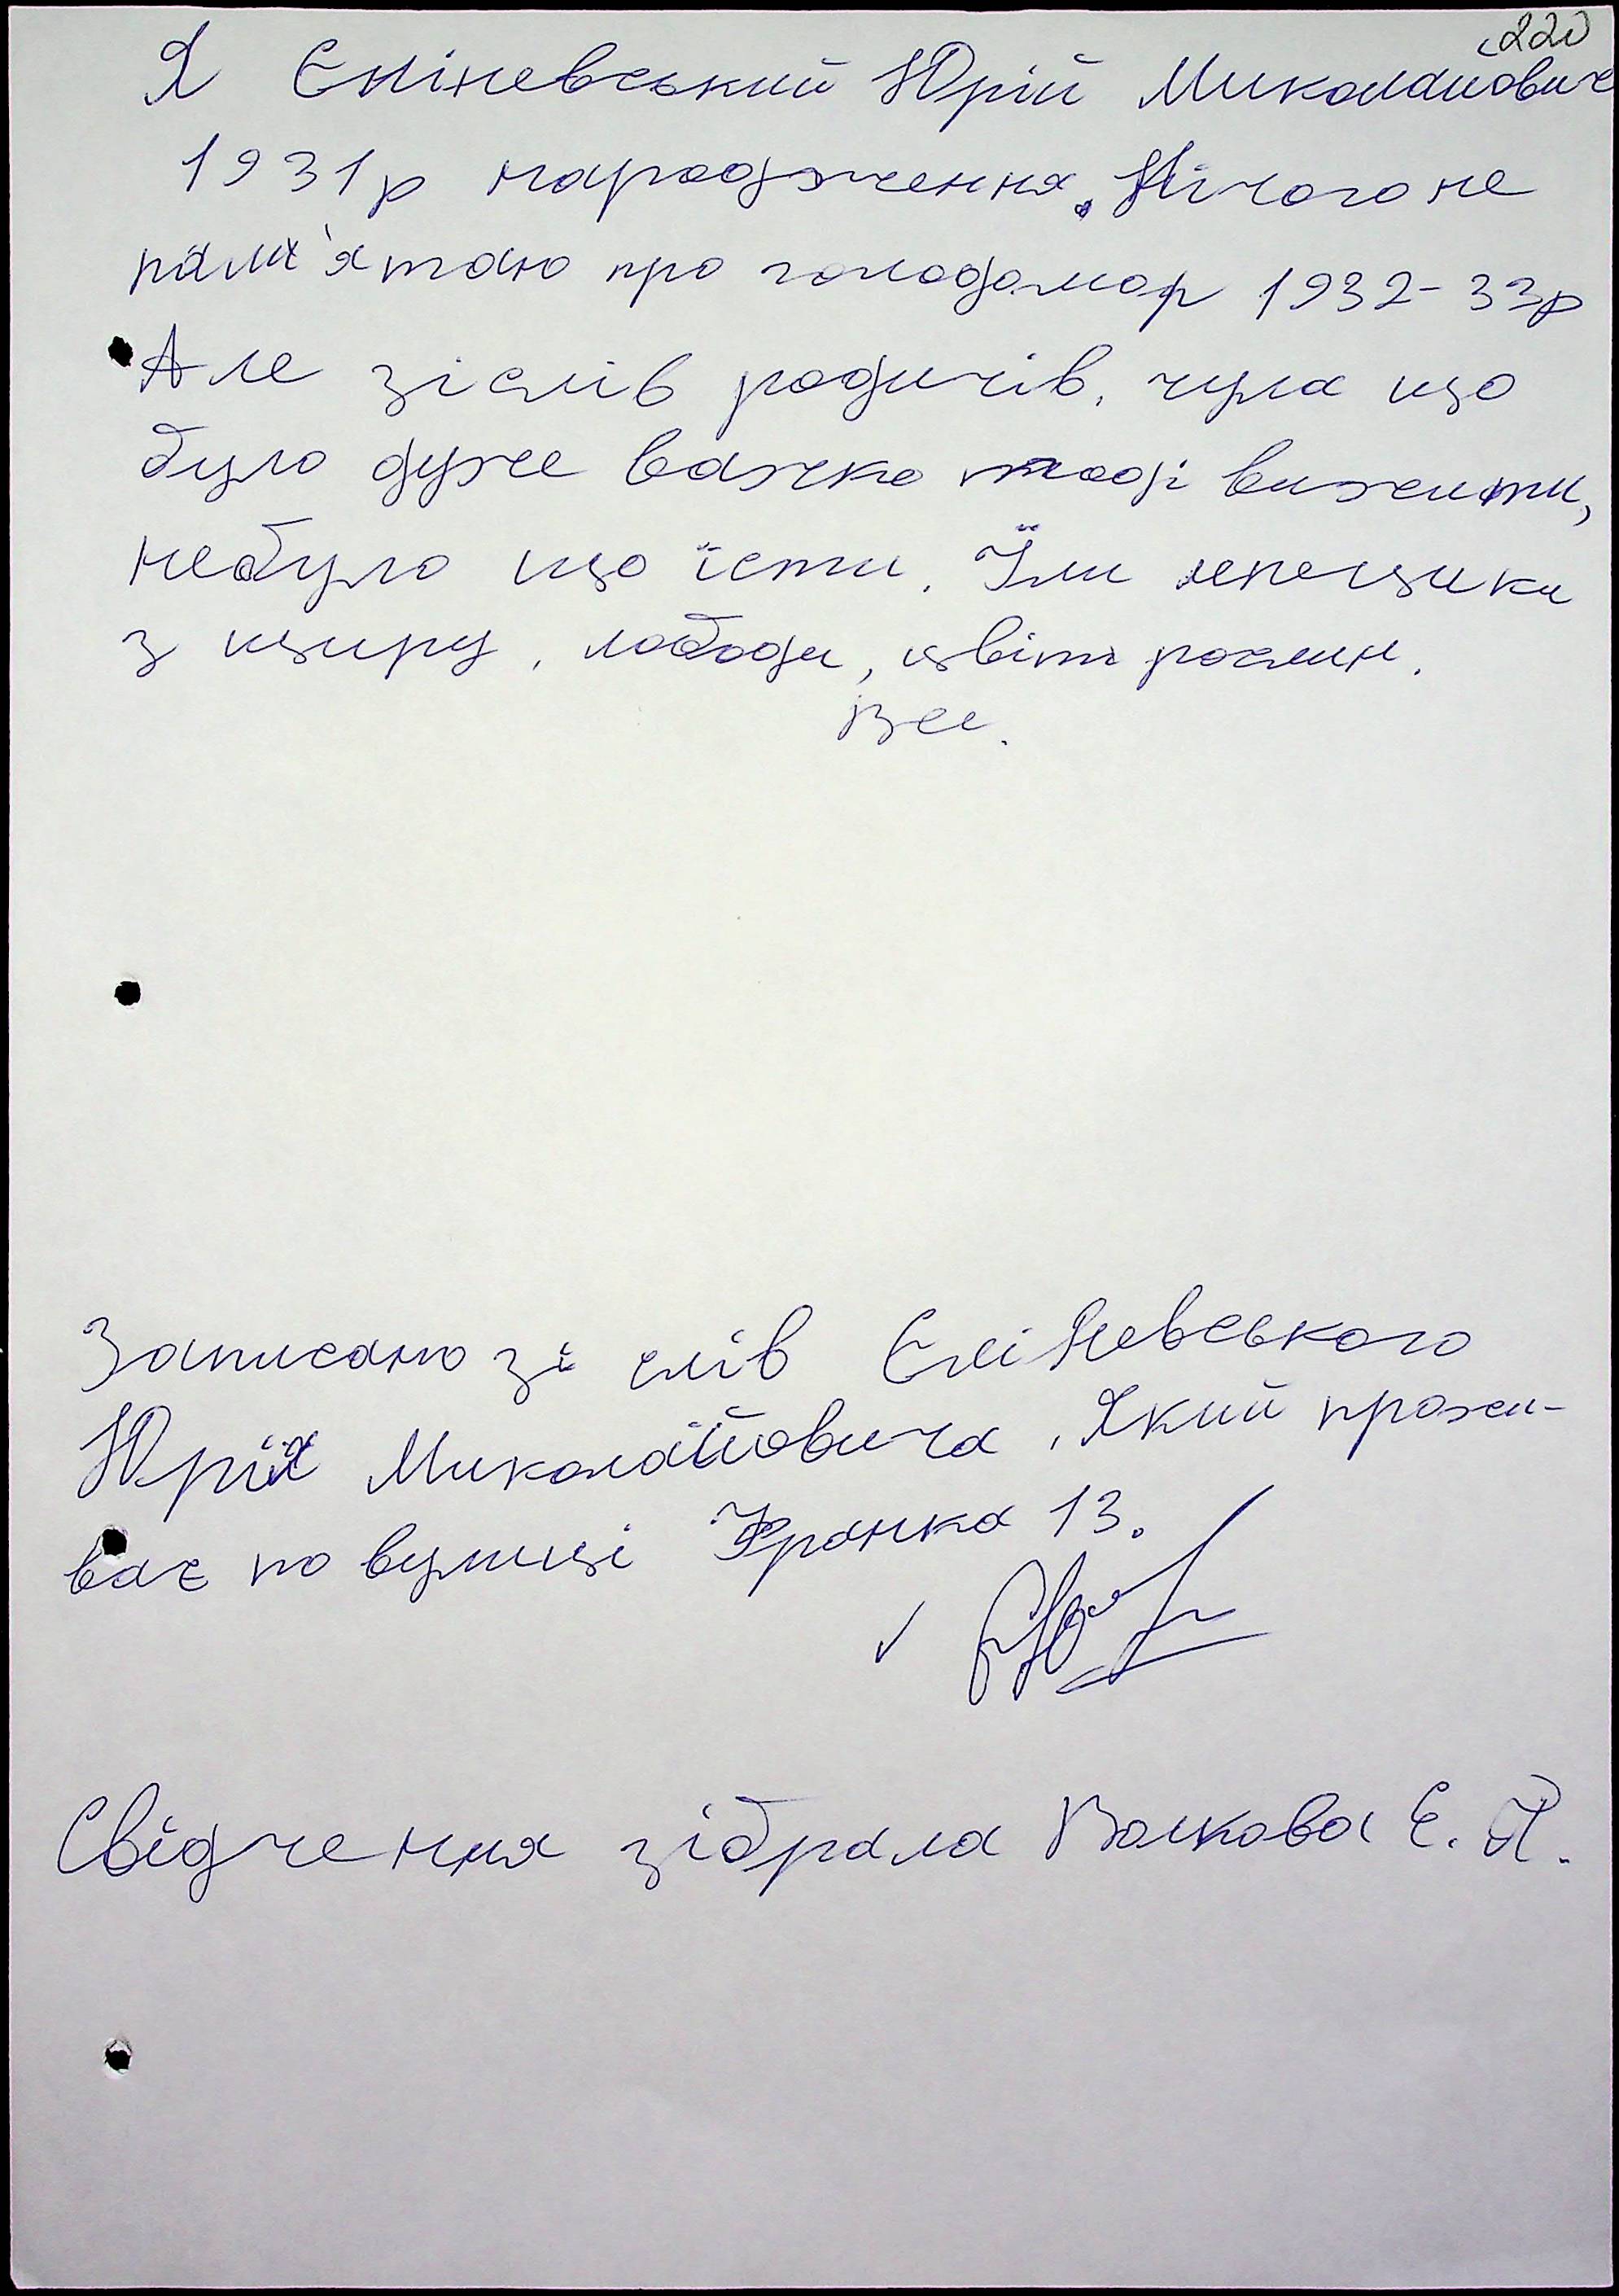 220
Я Єліневський Юрій Миколайович
1931р народження. Нічого не
пам'ятаю про голодомор 1932-33р
Але зі слів родичів, чула що
було дуже важко тоді вижити,
небуло що їсти. Їли лепещики
з щиру, лободи, цвіт рослин.
Все.
Записано зі слів Єліневського
Юрія Миколайовича, Який прожи-
ває по вулиці Франка 13.
Свідчення зібрала Волкова Є.